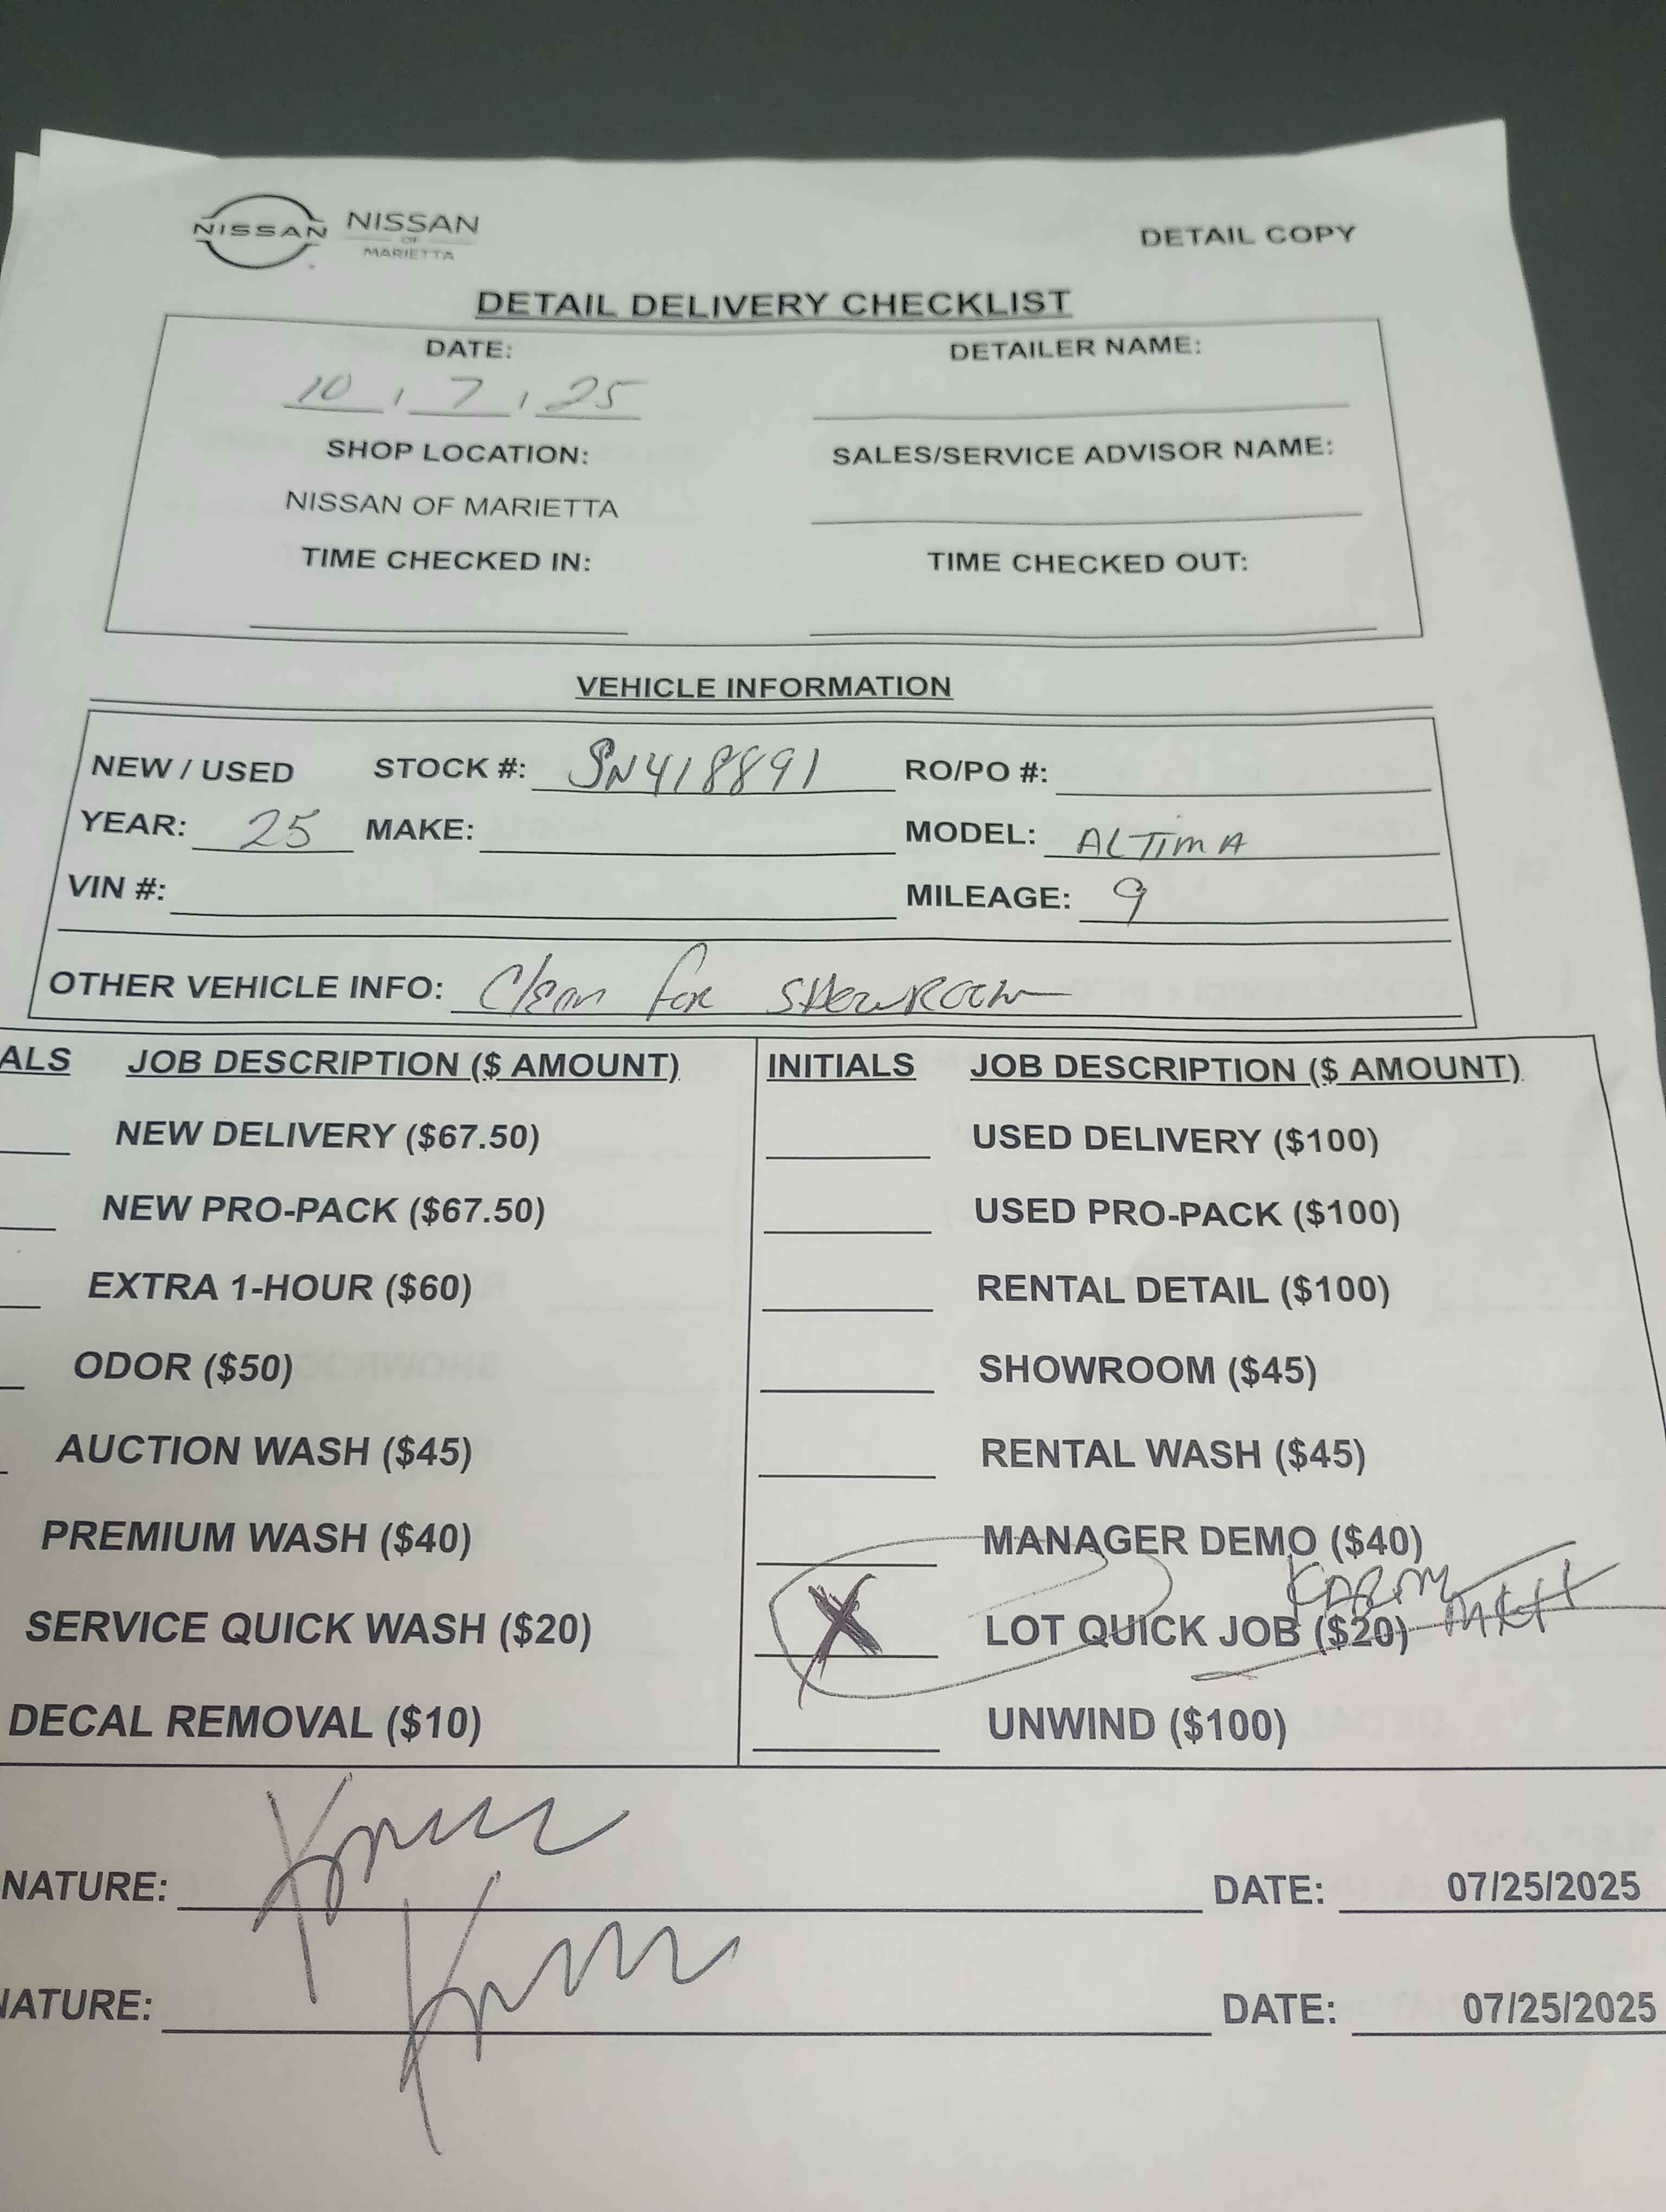 NISSAN NISSAN OF MARIETTA
DETAIL COPY
DETAIL DELIVERY CHECKLIST
DATE: DETAILER NAME:
10 , 7 , 25
SHOP LOCATION: SALES/SERVICE ADVISOR NAME:
NISSAN OF MARIETTA
TIME CHECKED IN: TIME CHECKED OUT:
VEHICLE INFORMATION
NEW / USED STOCK #: SN418891 RO/PO #:
YEAR: 25 MAKE: MODEL: ALTIMA
VIN #: MILEAGE: 9
OTHER VEHICLE INFO: Clean for SHOWROOM
ALS JOB DESCRIPTION ($ AMOUNT) INITIALS JOB DESCRIPTION ($ AMOUNT)
NEW DELIVERY ($67.50) USED DELIVERY ($100)
NEW PRO-PACK ($67.50) USED PRO-PACK ($100)
EXTRA 1-HOUR ($60) RENTAL DETAIL ($100)
ODOR ($50) SHOWROOM ($45)
AUCTION WASH ($45) RENTAL WASH ($45)
PREMIUM WASH ($40) MANAGER DEMO ($40)
SERVICE QUICK WASH ($20) X LOT QUICK JOB ($20)
DECAL REMOVAL ($10) UNWIND ($100)
NATURE: DATE: 07/25/2025
NATURE: DATE: 07/25/2025